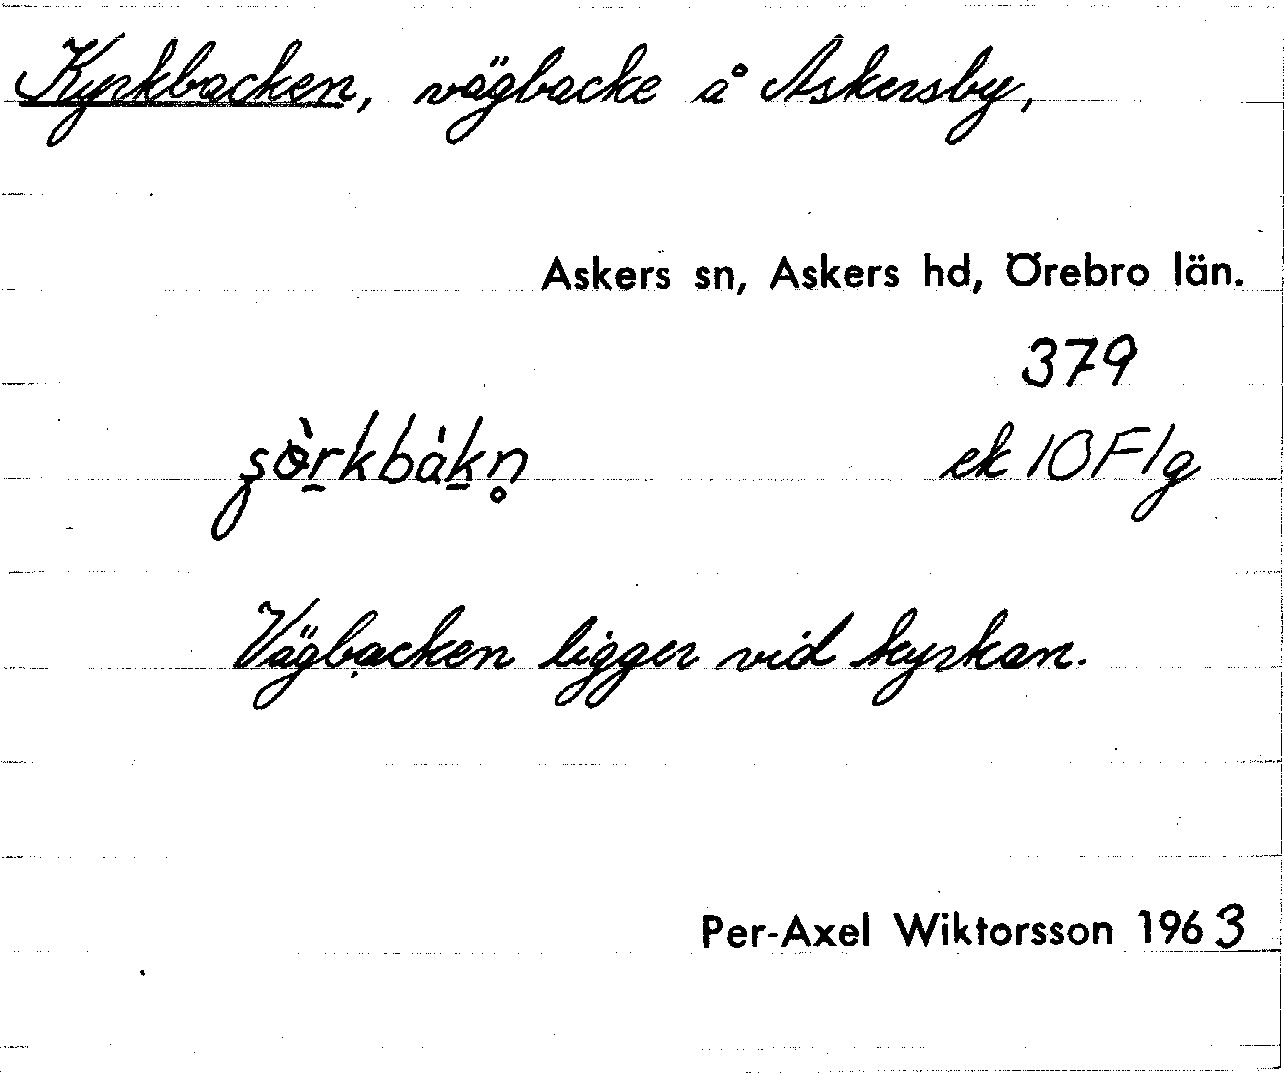 Kyrkbacken, vägbacke å Askersby,
Askers sn, Askers hd, Örebro län.
379
ʂɵ̀r̲kbák̲n̥ ek 10F1g
Vägbacken ligger vid kyrkan.
Per-Axel Wiktorsson 1963